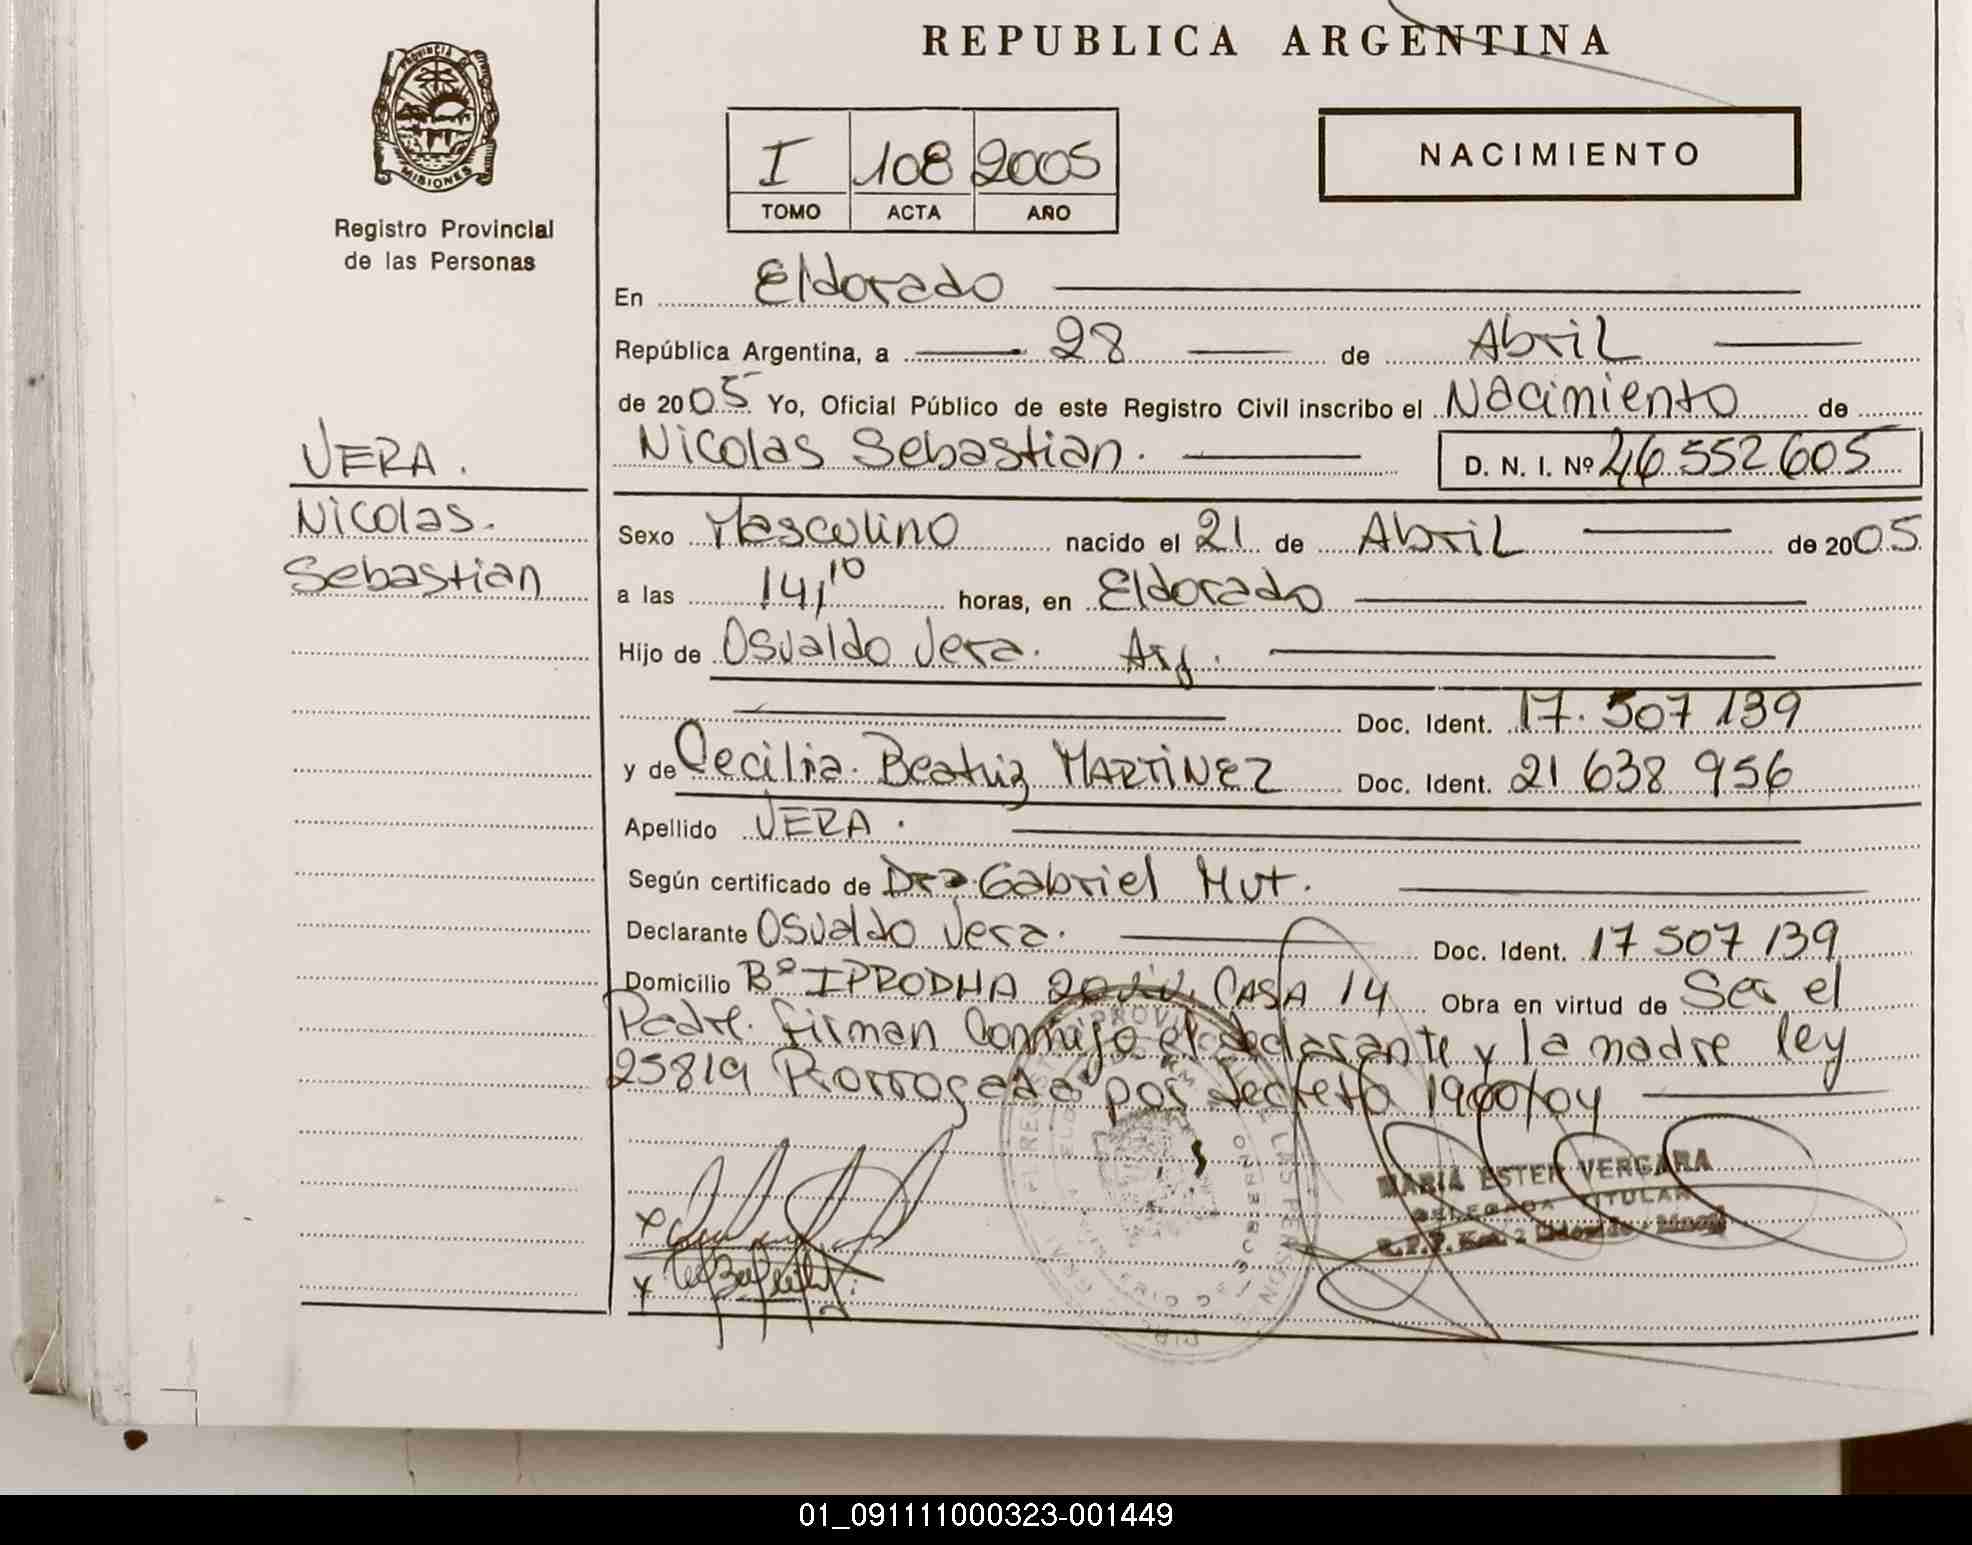 REPUBLICA ARGENTINA
PROVINCIA DE
MISIONES
Registro Provincial
de las Personas
I 108 2005
TOMO ACTA AÑO
NACIMIENTO
En Eldorado
República Argentina, a 28 de Abril
de 2005 Yo, Oficial Público de este Registro Civil inscribo el Nacimiento de
Nicolas Sebastian. D. N. I. Nº 46 552 605
VERA.
Nicolas.
Sebastian
Sexo Masculino nacido el 21 de Abril de 2005
a las 14,10 horas, en Eldorado
Hijo de Osvaldo Vera. Arg.
Doc. Ident. 17.507 139
y de Cecilia Beatriz MARTINEZ Doc. Ident. 21 638 956
Apellido VERA.
Según certificado de Dra. Gabriel Mut.
Declarante Osvaldo Vera. Doc. Ident. 17 507 139
Domicilio Bº IPRODHA 20 viv. CASA 14 Obra en virtud de Ser el
Padre. firman Conmigo el declarante y la madre ley
25819 Prorrogada por decreto 1900/04
MARIA ESTER VERGARA
DELEGADA TITULAR
R.P.P. 2 Eldorado
01_091111000323-001449